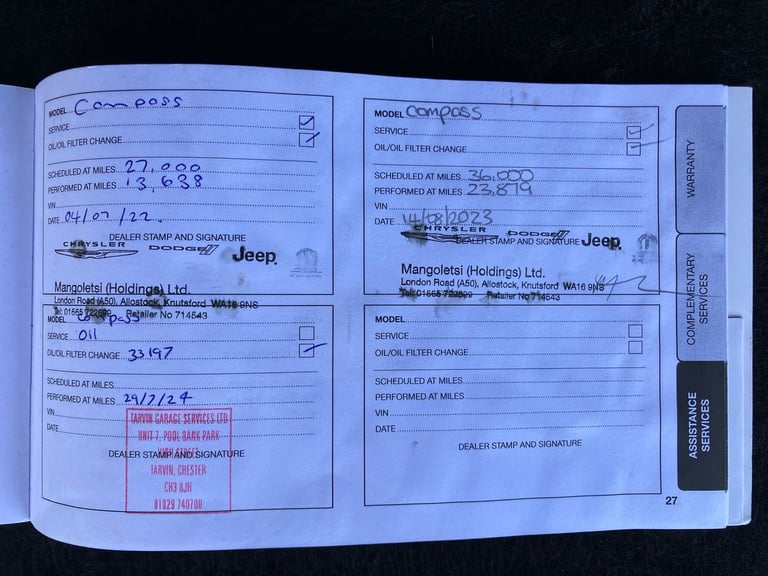 MODEL Compass
SERVICE
OIL/OIL FILTER CHANGE
SCHEDULED AT MILES 27,000
PERFORMED AT MILES 13,638
VIN
DATE 04/07/22.
DEALER STAMP AND SIGNATURE
CHRYSLER DODGE Jeep
Mangoletsi (Holdings) Ltd.
London Road (A50), Allostock, Knutsford WA16 9NS
Tel: 01565 722899 Retailer No 714543
MODEL Compass
SERVICE Oil
OIL/OIL FILTER CHANGE 33197
SCHEDULED AT MILES
PERFORMED AT MILES 29/7/24
VIN
DATE
DEALER STAMP AND SIGNATURE
TARVIN GARAGE SERVICES LTD
UNIT 7, POOL BANK PARK
HIGH STREET
TARVIN, CHESTER
CH3 8JH
01829 740700
MODEL Compass
SERVICE
OIL/OIL FILTER CHANGE
SCHEDULED AT MILES 36,000
PERFORMED AT MILES 23,879
VIN
DATE 14/08/2023
CHRYSLER DODGE Jeep
DEALER STAMP AND SIGNATURE
Mangoletsi (Holdings) Ltd.
London Road (A50), Allostock, Knutsford WA16 9NS
Tel: 01565 722899 Retailer No 714543
MODEL
SERVICE
OIL/OIL FILTER CHANGE
SCHEDULED AT MILES
PERFORMED AT MILES
VIN
DATE
DEALER STAMP AND SIGNATURE
27
WARRANTY
COMPLEMENTARY
SERVICES
ASSISTANCE
SERVICES